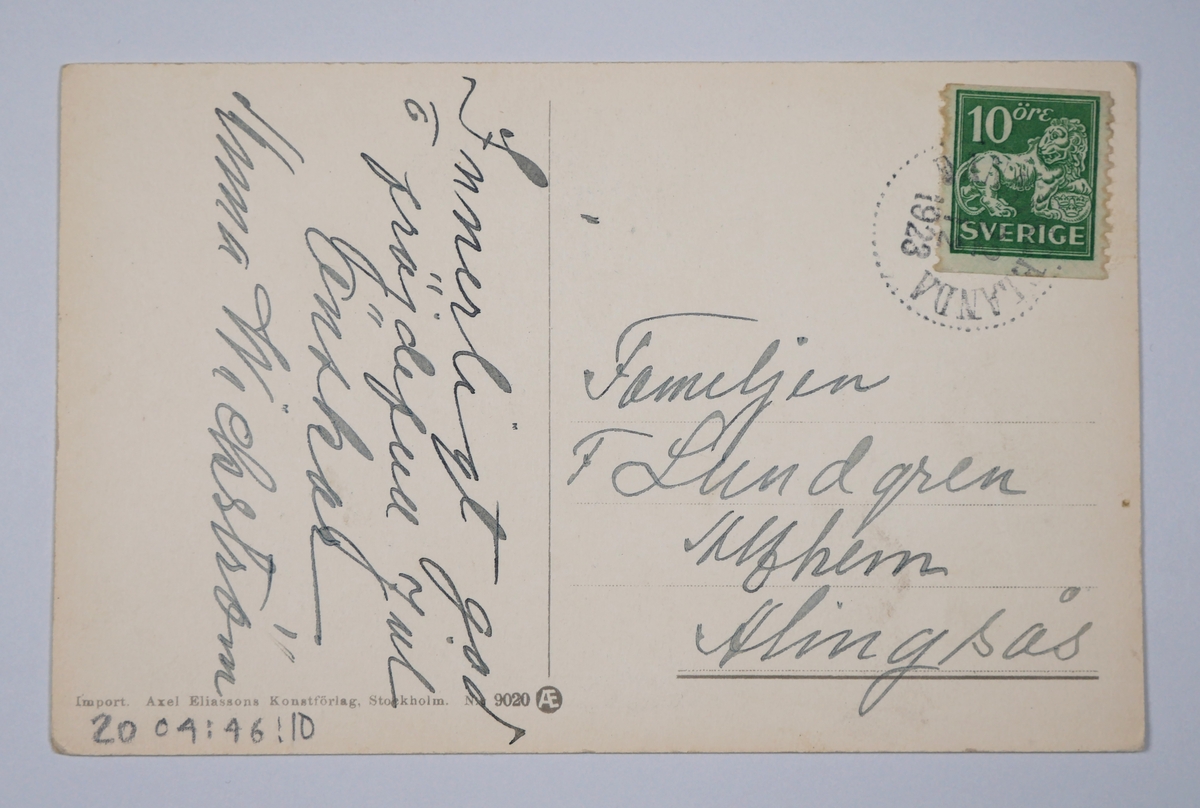 Innerligt god
o fröjdefull Jul
Önskas
Anna Wickström
10 öre
SVERIGE
1923
LANDA
Familjen
F Lundgren
Alfhem
Alingsås
Import. Axel Eliassons Konstförlag, Stockholm. No 9020 Æ
20 04:46:10